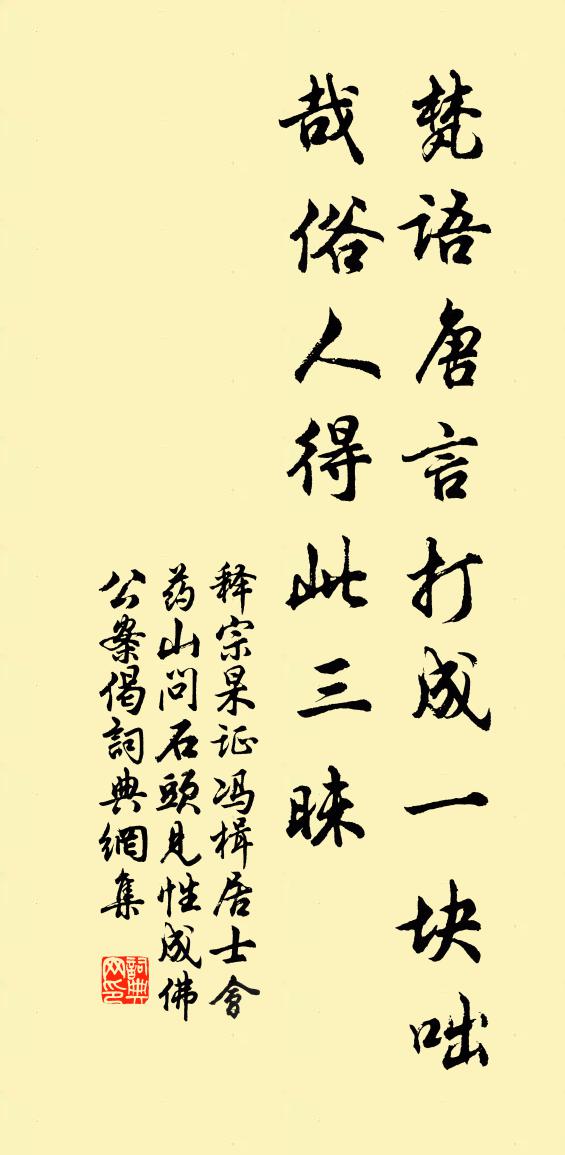 梵语唐言打成一块咄
哉俗人得此三昧
释宗杲证冯楫居士會
药山问石頭見性成佛
公案偈詞典網集
詞典网印